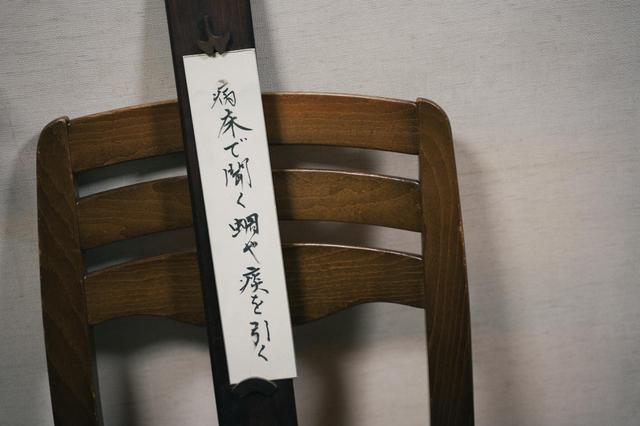 病床で聞く蜩や痰を引く